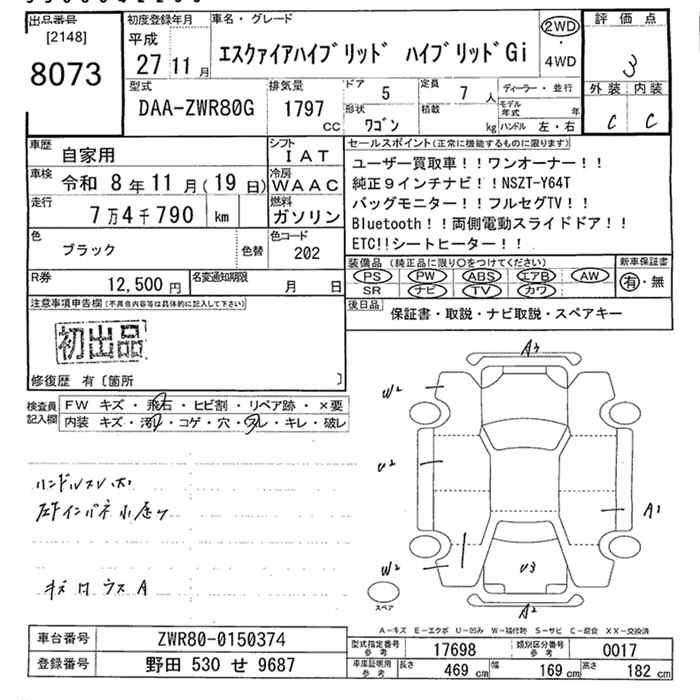 出品番号
[2148]
8073
初度登録年月
平成
27 11 月
車名・グレード
エスクァイアハイブリッド ハイブリッドGi
2WD
・
4WD
評価点
3
外装 内装
C C
型式
DAA-ZWR80G
排気量
1797
cc
ドア
5
定員
7 人
形状
ワゴン
積載
kg
ディーラー・並行
モデル年式 年
ハンドル 左・右
車歴
自家用
シフト
IAT
車検
令和 8 年 11 月 (19 日)
冷房
WAAC
走行
7 万 4 千 790 km
燃料
ガソリン
色
ブラック
色替
色コード
202
R券
12,500 円
名変通知期限
月 日
セールスポイント(正常に機能するものに限ります)
ユーザー買取車!!ワンオーナー!!
純正9インチナビ!!NSZT-Y64T
バッグモニター!!フルセグTV!!
Bluetooth!!両側電動スライドドア!!
ETC!!シートヒーター!!
装備品 (純正品に限り〇をつけてください)
PS PW ABS エアB AW
SR ナビ TV カワ
新車保証書
有・無
後日品
保証書・取説・ナビ取説・スペアキー
注意事項申告欄(不具合内容等は具体的に記入して下さい)
初出品
修復歴 有〔箇所 〕
検査員記入欄
FW キズ・飛石・ヒビ割・リペア跡・×要
内装 キズ・汚レ・コゲ・穴・スレ・キレ・破レ
ハンドルスレ大
キズ口ウスA
A3
W2
U2
A1
U3
W2
A2
スペア
A-キズ E-エクボ U-凹み W-補修跡 S-サビ C-腐食 XX-交換済
車台番号
ZWR80-0150374
登録番号
野田 530 せ 9687
型式指定番号
参考
17698
類別区分番号
参考
0017
車庫証明用
参考
長さ
469 cm
幅
169 cm
高さ
182 cm